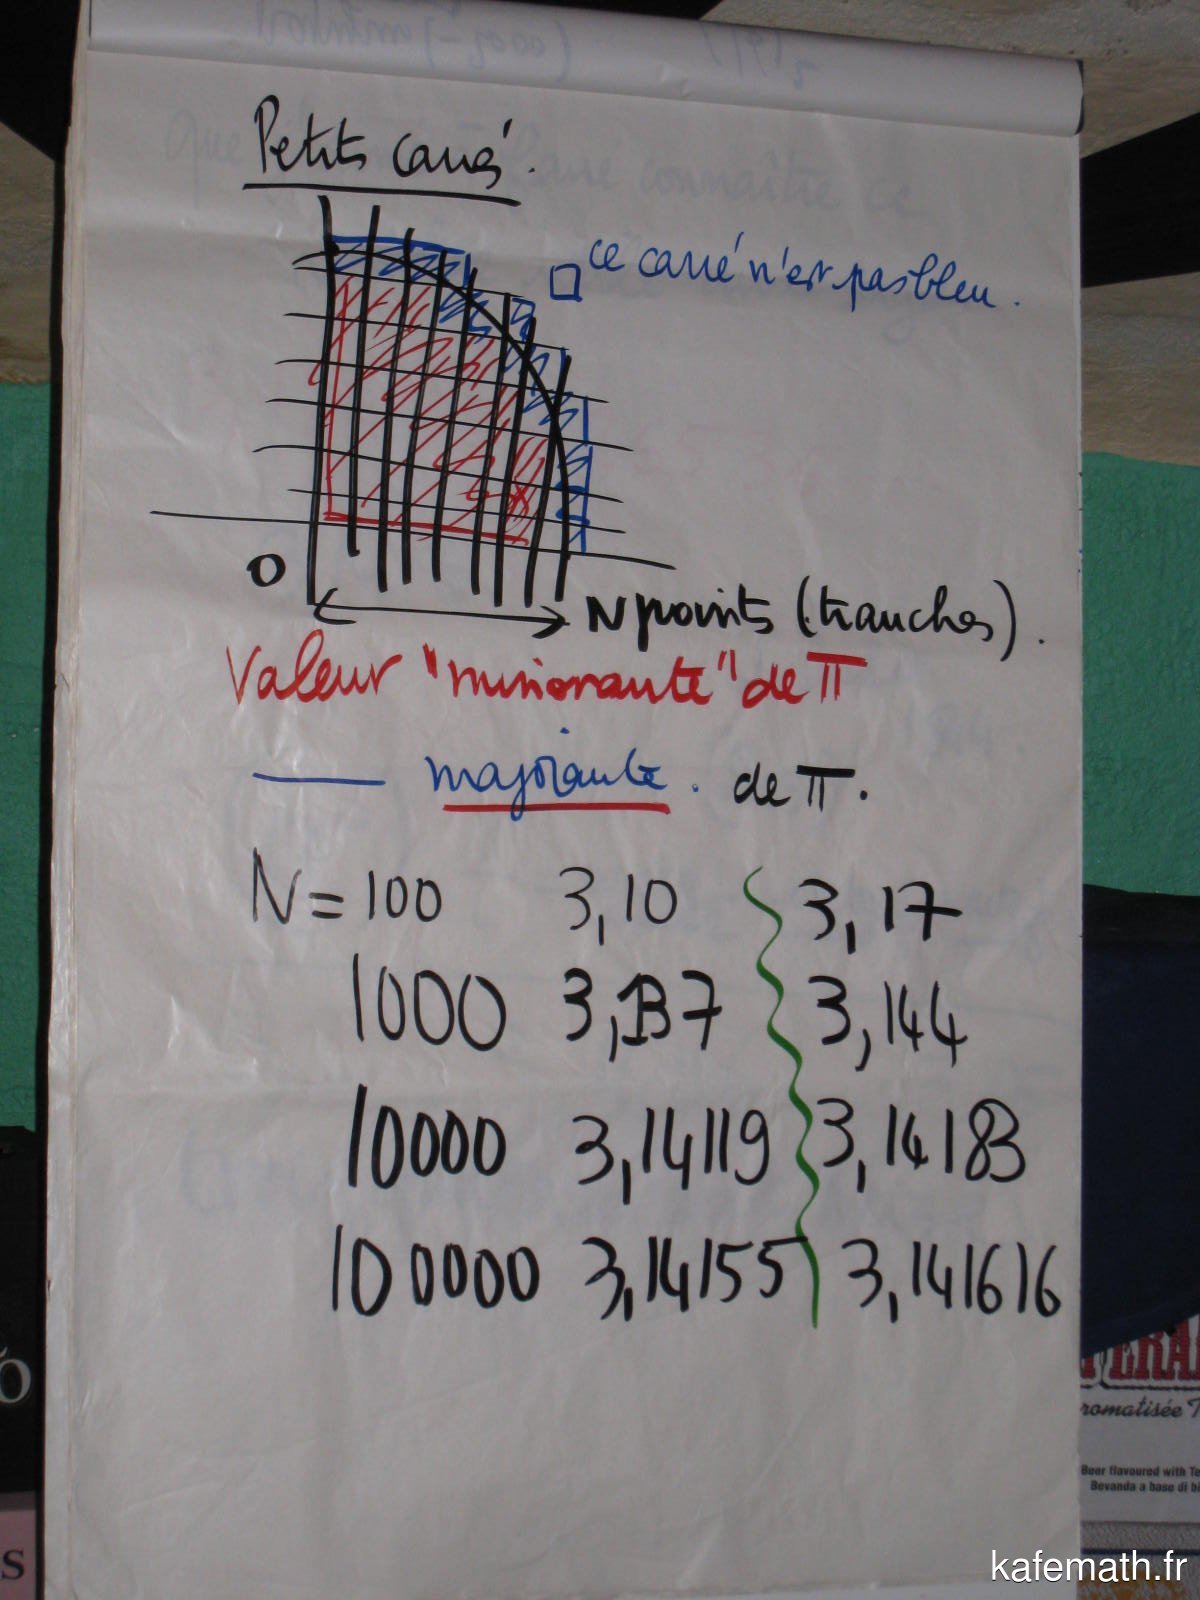 Petits carrés.
ce carré n'est pas bleu.
O
N points (tranches).
Valeur "minorante" de π
majorante. de π.
N = 100 3,10 3,17
1000 3,137 3,144
10000 3,14119 3,14183
100000 3,14155 3,141616
romatisée T
Beer flavoured with Te
Bevanda a base di bi
kafemath.fr